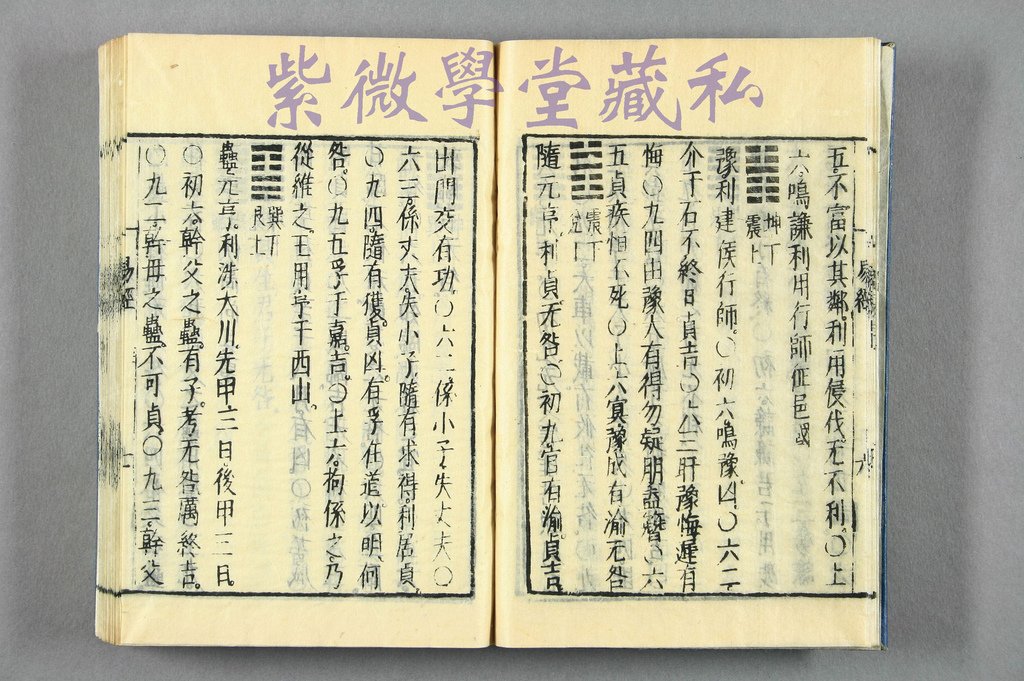 紫微學堂藏私
五。不富以其鄰利用侵伐。无不利。〇上
六。鳴謙利用行師征邑國
坤下
震上
豫。利建侯行師。〇初六鳴豫凶。〇六二
介于石不終日貞吉〇六三盱豫悔遲有
悔〇九四由豫大有得勿疑朋盍簪〇六
五貞疾恒不死〇上六冥豫成有渝无咎
震下
隨元亨利貞无咎〇初九官有渝貞吉
出門交有功。〇六二係小子失丈夫〇
六三。係丈夫。失小子隨有求得。利居貞。
〇九四。隨有獲。貞凶。有孚在道以明何
咎。〇九五孚于嘉。吉。〇上六。拘係之乃
從維之。王用亨于西山。
巽下
艮上
蠱元亨。利涉大川。先甲三日後甲三日。
〇初六。幹父之蠱。有子。考无咎厲終吉。
〇九二。幹母之蠱不可貞〇九三。幹父
易經
易經
六